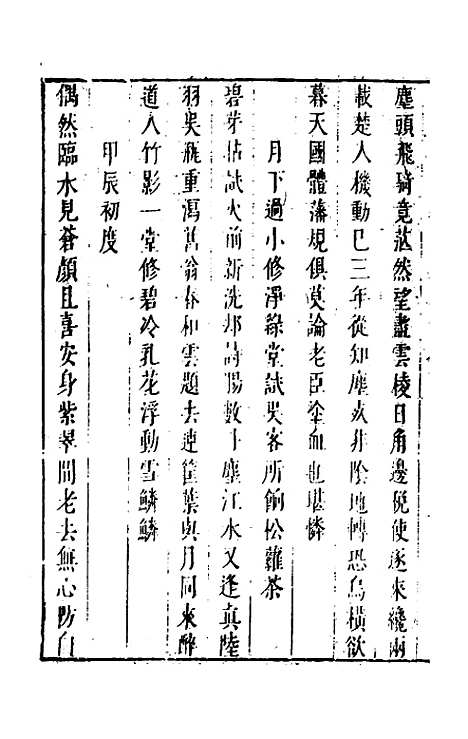 塵頭飛騎竟茫然望盡雲稜日角邊說使逐來纔兩
載楚人機動巳三年從知塵亥非陰地轉恐烏橫欲
暮天國體藩規俱莫論老臣塗血也堪憐
月下過小修淨綠堂試吳客所餉松蘿茶
碧芽拈試火前新洗却詩腸數十塵江水又逢真陸
羽吳瓶重瀉舊翁春和雲題去連筐葉與月同來醉
道人竹影一堂修碧冷乳花浮動雪鱗鱗
甲辰初度
偶然臨水見蒼顏且喜安身紫翠間老去無心防白